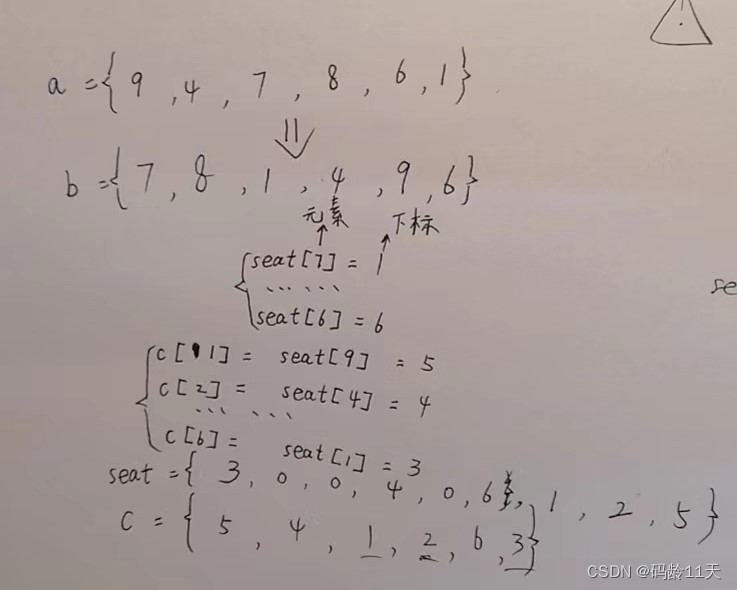 a = { 9 , 4 , 7 , 8 , 6 , 1 }
⇓
b = { 7 , 8 , 1 , 4 , 9 , 6 }
元素 下标
seat[7] = 1
… …
seat[6] = 6
se
c[1] = seat[9] = 5
c[2] = seat[4] = 4
… …
c[6] = seat[1] = 3
seat = { 3 , 0 , 0 , 4 , 0 , 6 , 1 , 2 , 5 }
C = { 5 , 4 , 1 , 2 , 6 , 3 }
CSDN @码龄11天